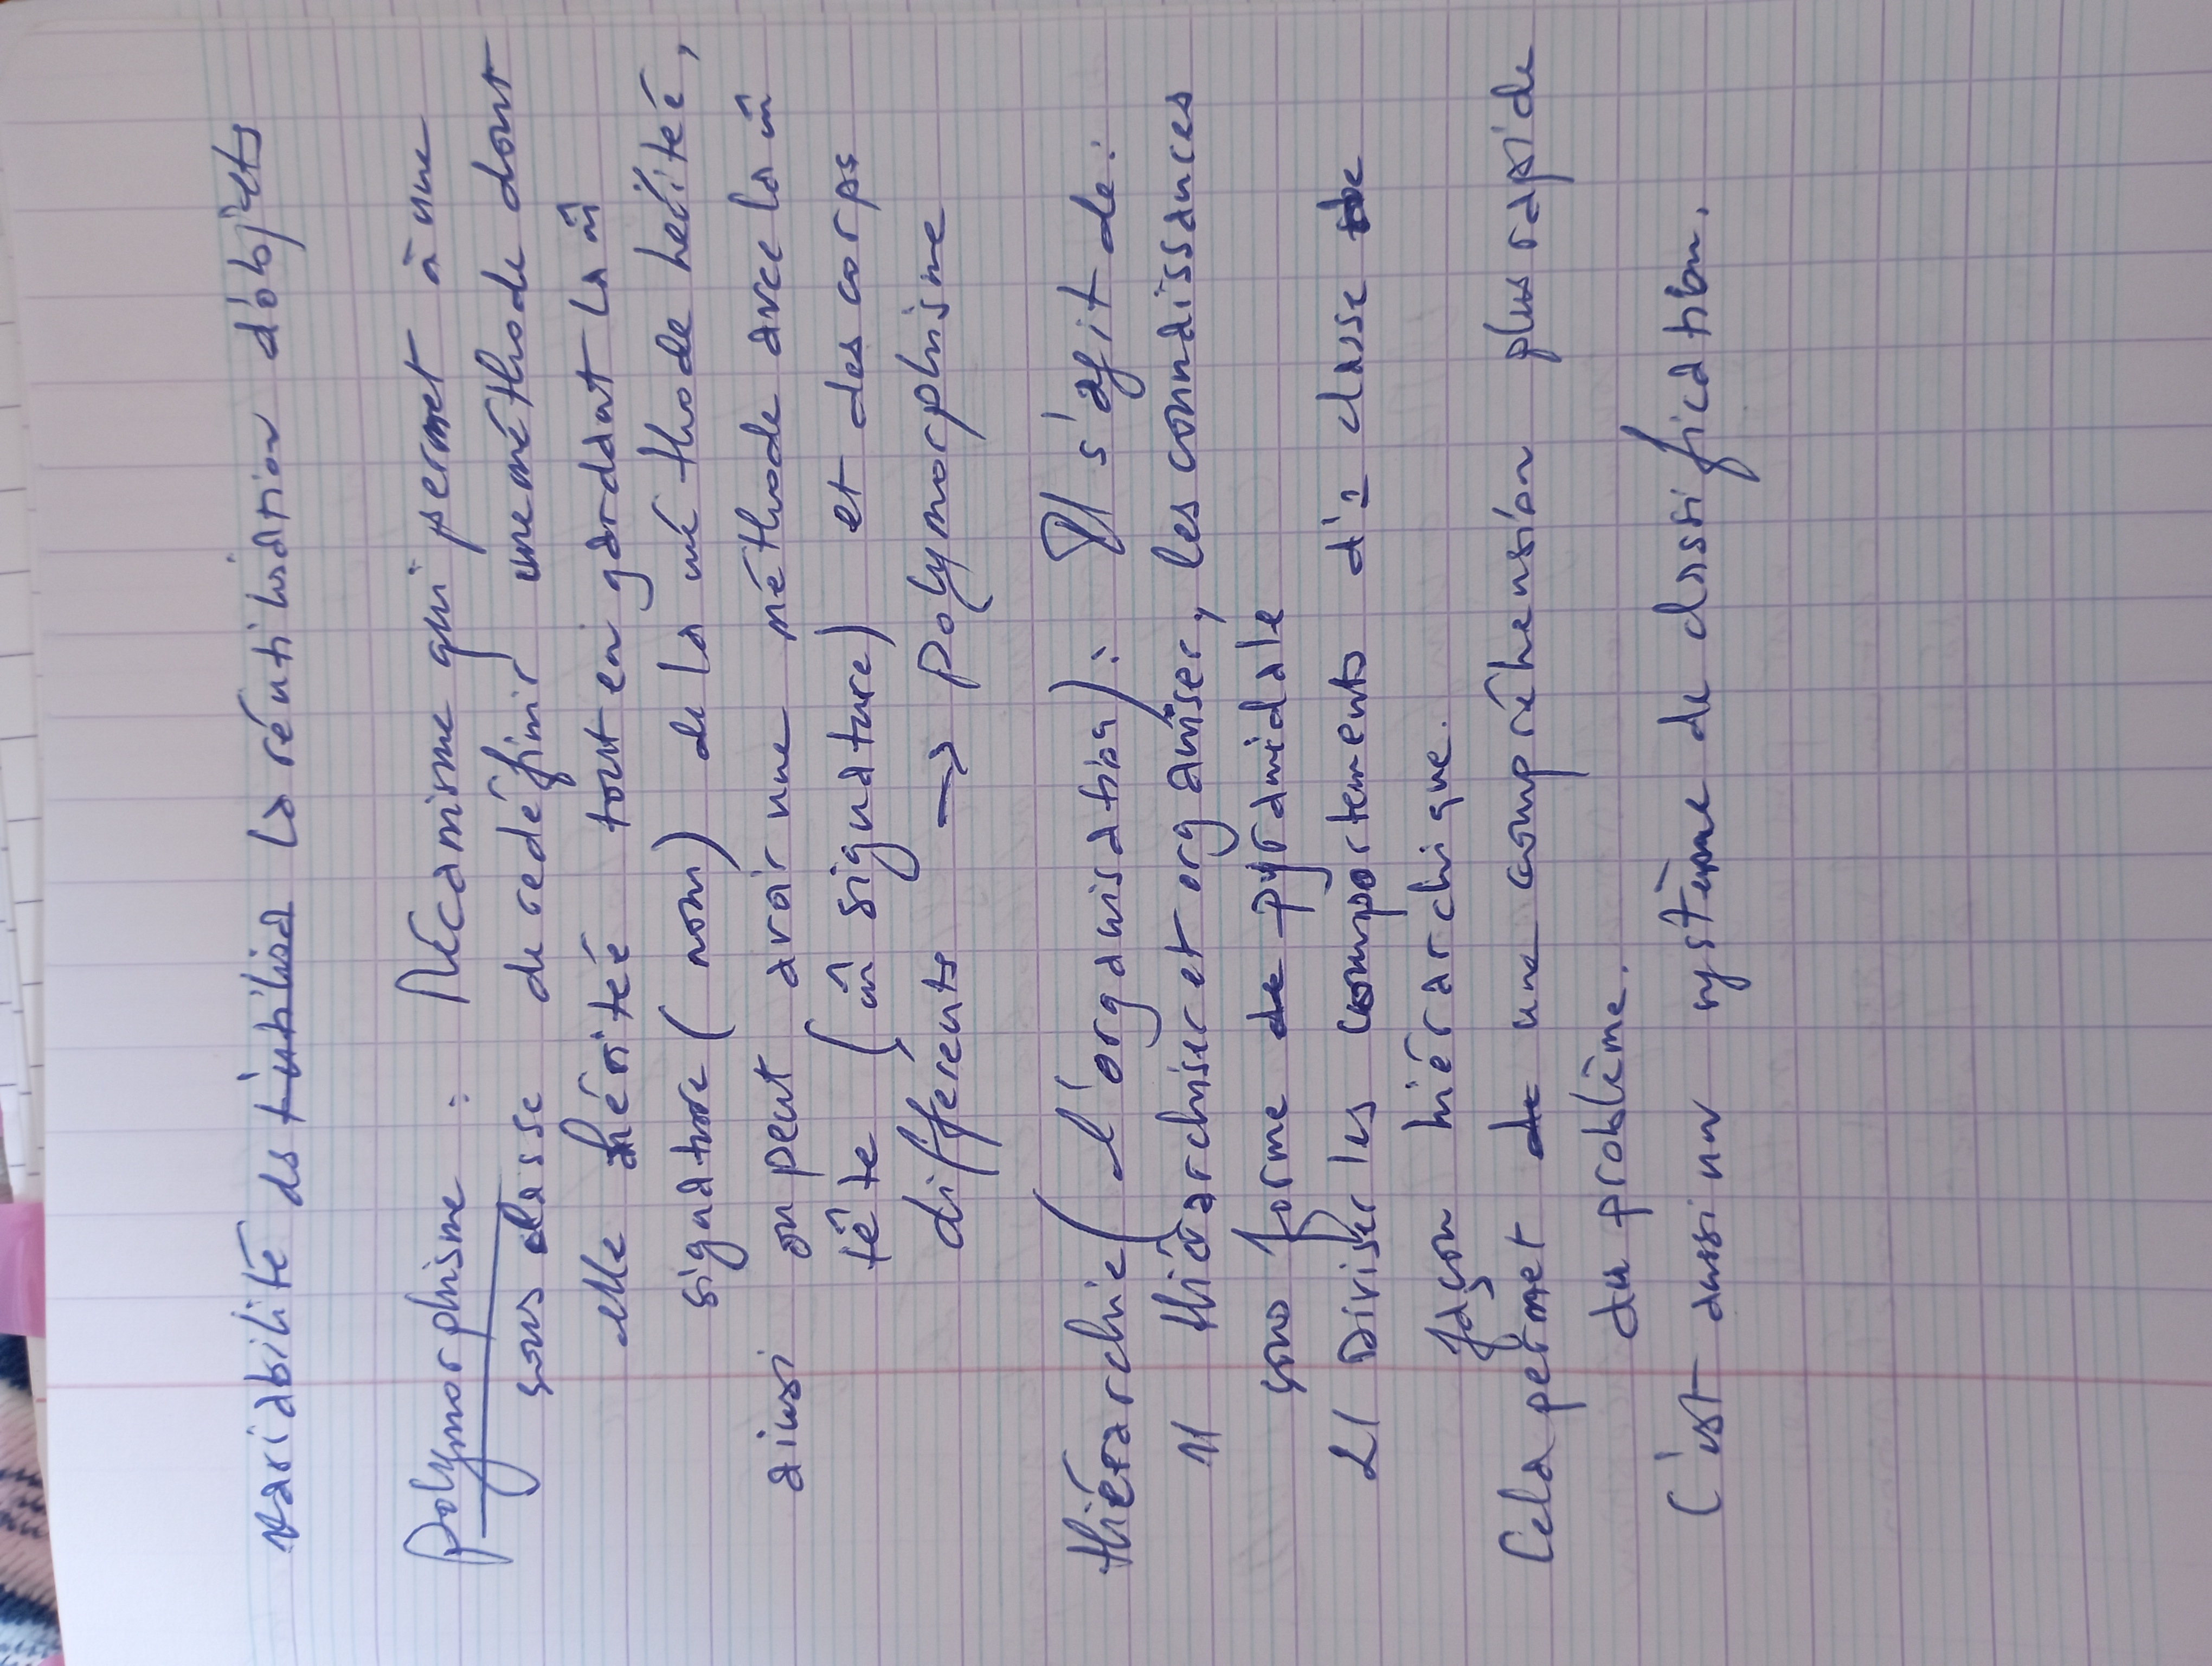 variabilité ds l'utilisa la réutilisation d'objets
polymorphisme : Mécanisme qui permet à une
sous classe de redéfinir une méthode dont
elle héritée tout en gardant la m̂
signature ( nom ) de la méthode heŕiteé,
ainsi on peut avoir une méthode avec la m̂
tête ( m̂ signature ) et des corps
différents → polymorphisme
Hiérarchie ( l'organisation ) : Il s'agit de :
1/ Hiérarchiser et organiser, les connaissances
sous forme de pyramidale
2/ Diviser les comportements d'1 classe de
façon hiérarchique.
Cela permet de une compréhension plus rapide
du problème.
C'est aussi un système de classification.